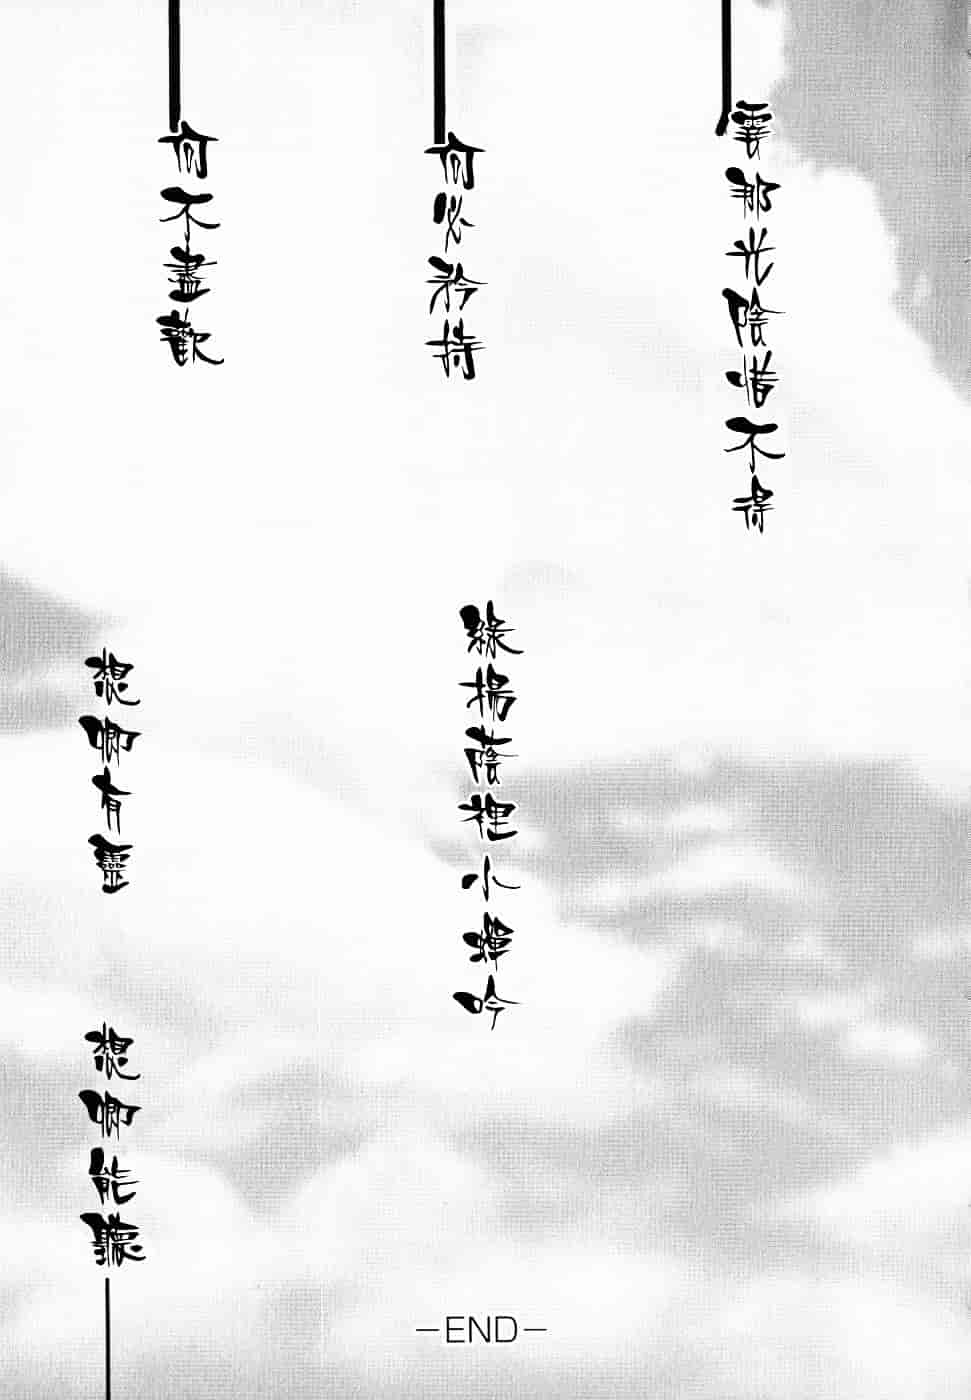 霎那光陰惜不得
綠揚蔭裡小蟬吟
何必矜持
何不盡歡
想卿有靈
想卿能聽
－END－